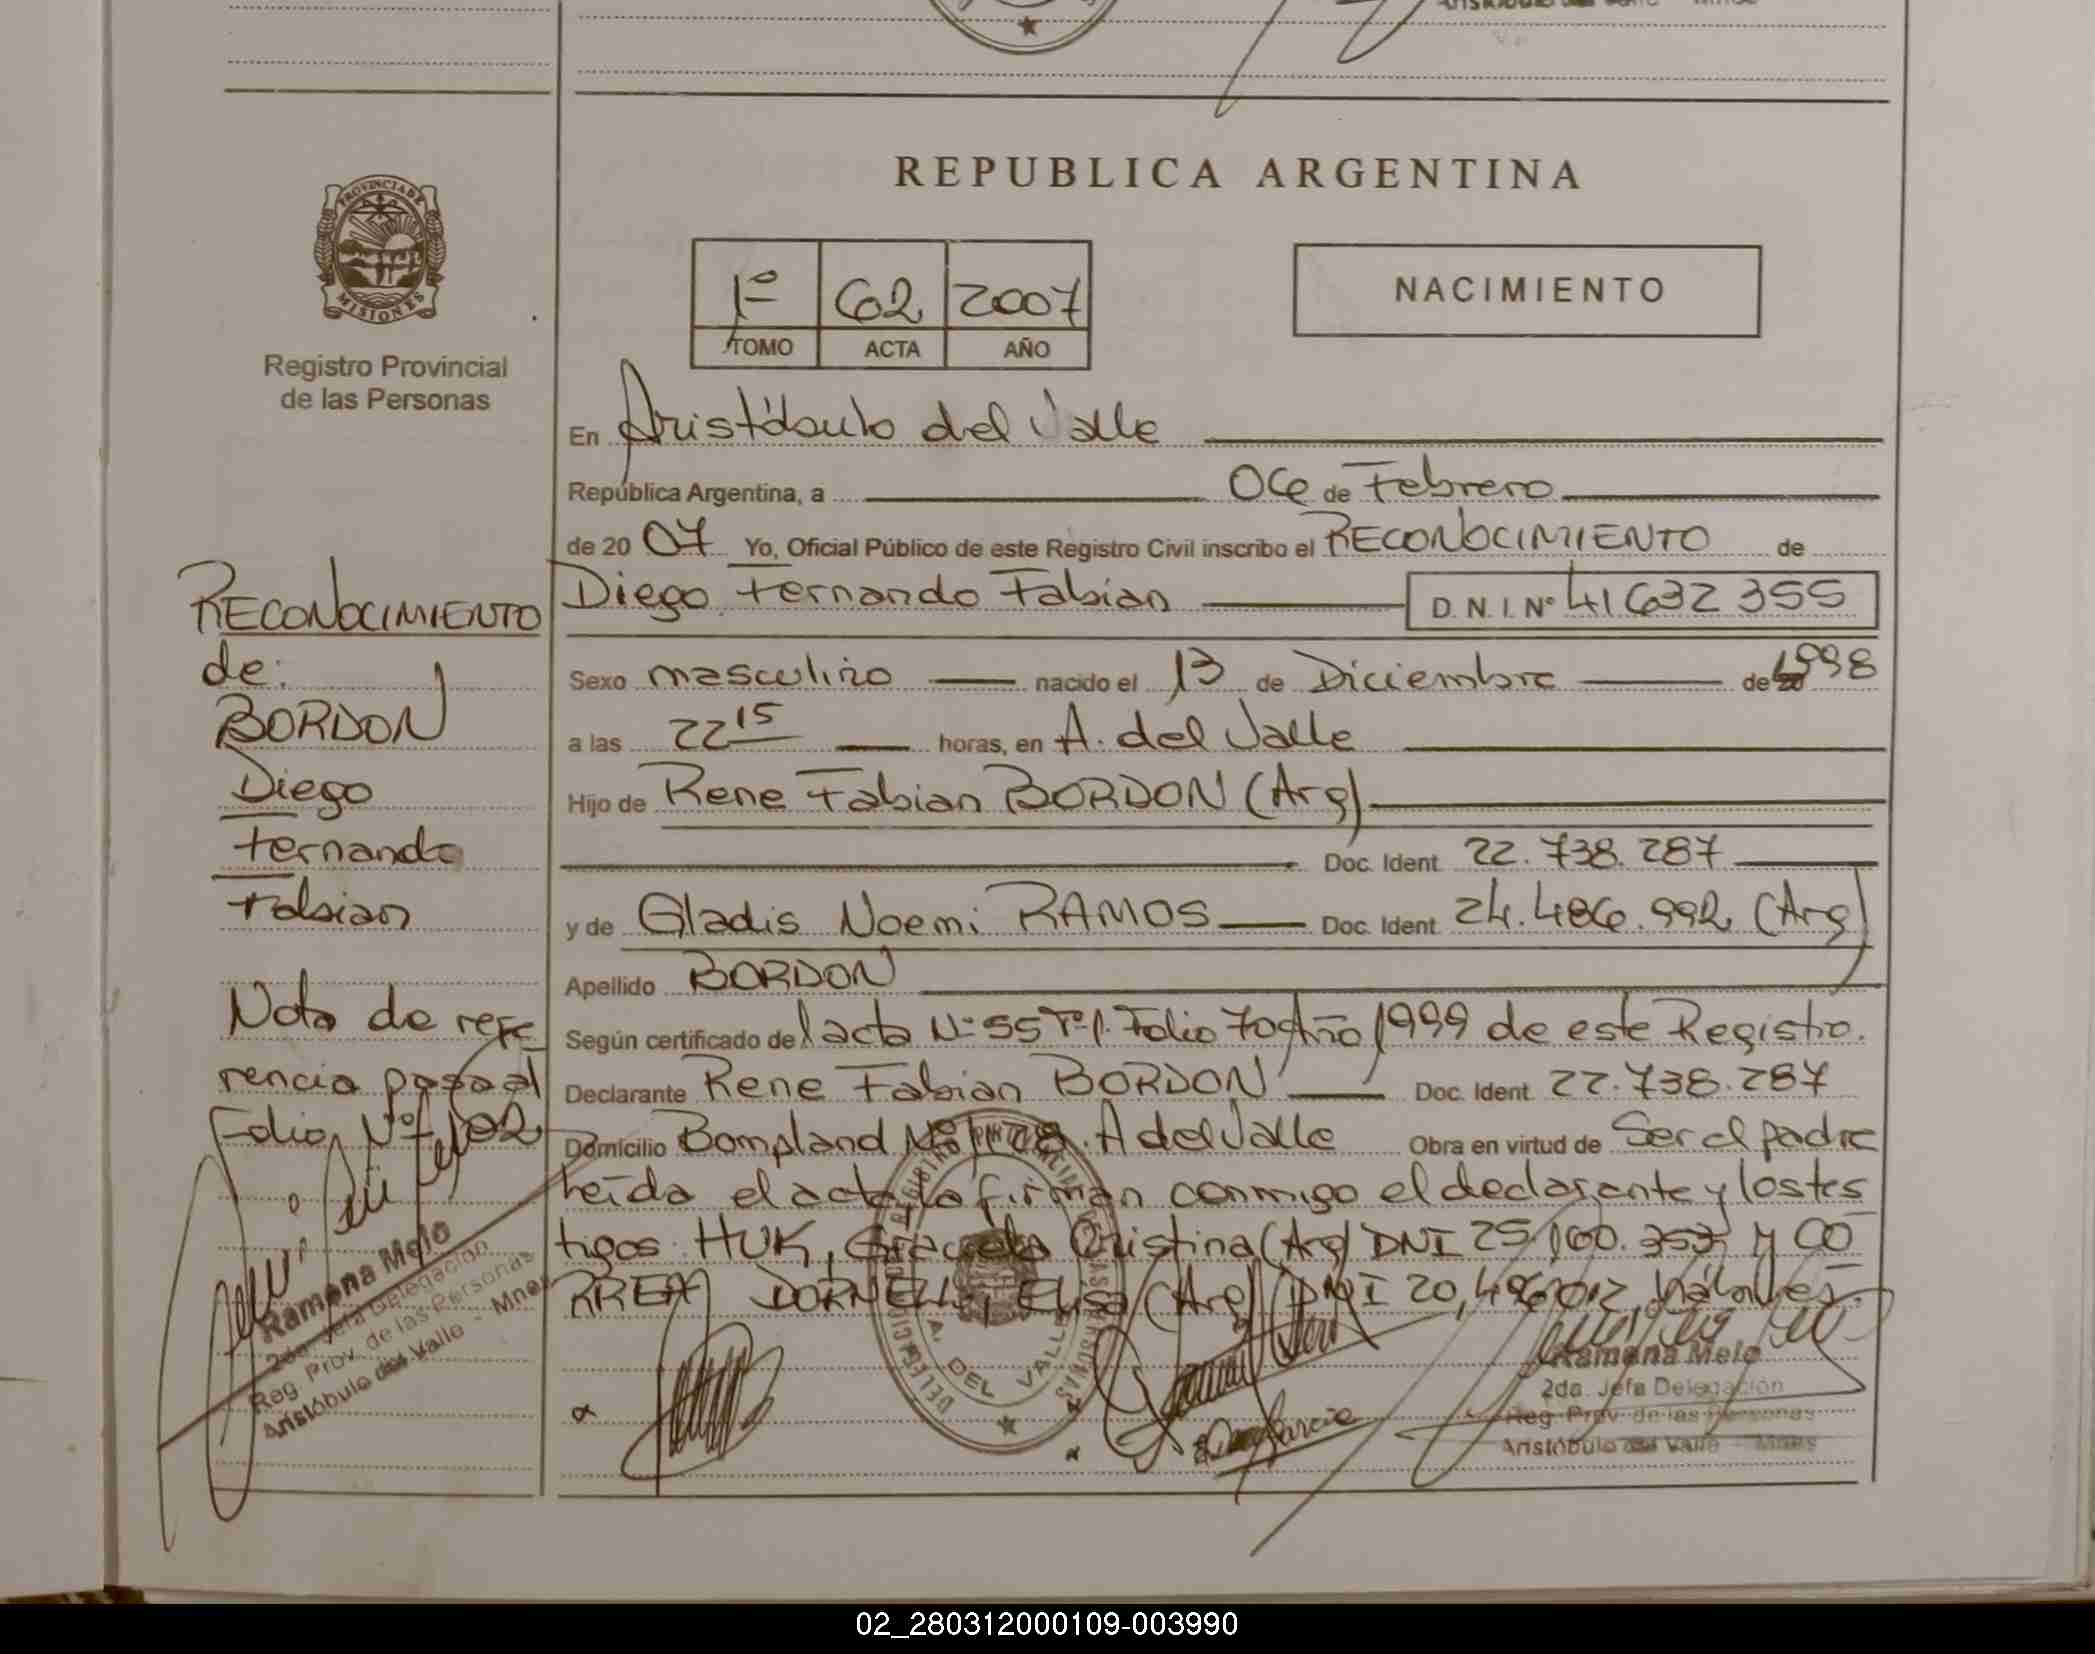 REPUBLICA ARGENTINA
PROVINCIA DE
MISIONES
Registro Provincial
de las Personas
1º 62 2007
TOMO ACTA AÑO
NACIMIENTO
En Aristóbulo del Valle
República Argentina, a 06 de Febrero
de 2007 Yo, Oficial Público de este Registro Civil inscribo el RECONOCIMIENTO de
Diego Fernando Fabian D.N.I. Nº 41632355
Sexo masculino nacido el 13 de Diciembre de 1998
a las 22 15 horas, en A. del Valle
Hijo de Rene Fabian BORDON (Arg)
Doc. Ident. 22.738.287
y de Gladis Noemi RAMOS Doc. Ident. 24.486.992 (Arg)
Apellido BORDON
Según certificado del acta Nº 55 Tº 1º Folio 70 Año 1999 de este Registro.
Declarante Rene Fabian BORDON Doc. Ident. 22.738.287
Domicilio Bompland A del Valle Obra en virtud de Ser el padre
Leída el acta la firman conmigo el declarante y los tes
tigos: HUK, Graciela Cristina (Arg) DNI 25.160.353 y CO
RREA DORNELL, Elisa (Arg) DNI
RECONOCIMIENTO
de:
BORDON
Diego
Fernando
Fabian
Nota de refe
rencia pasa al
Folio Nº 102
Ramona Melo
2da. Jefa Delegación
Reg. Prov. de las Personas
Aristóbulo del Valle - Mnes
A. DEL VALLE
Garcia
Ramona Melo
2da. Jefa Delegación
Reg. Prov. de las Personas
Aristóbulo del Valle - Mnes
02_280312000109-003990